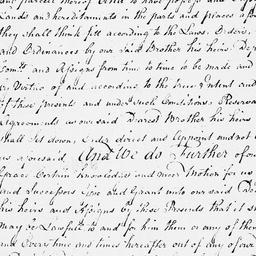 and hereditaments in the parts and places afore
they shall think fitt according to the Laws, Orders,
and Ordinances by our said Brother his heires Dep
and Assigns from time to time to be made and
Vertue of and according to the true Intent and
if these presents and under such Conditions Reserva
agreements as our said Dearest Brother his heirs
shall Set down, Order direct and Appoint and not
as aforesaid And We do Further of our
Grace Certain knowledge and meer Motion for us
and Successors Give and Grant unto our said De
his heirs and Assigns by these Presents that it s
may be Lawfull to and for him them or any of them
and Every time and times hereafter out of any of our